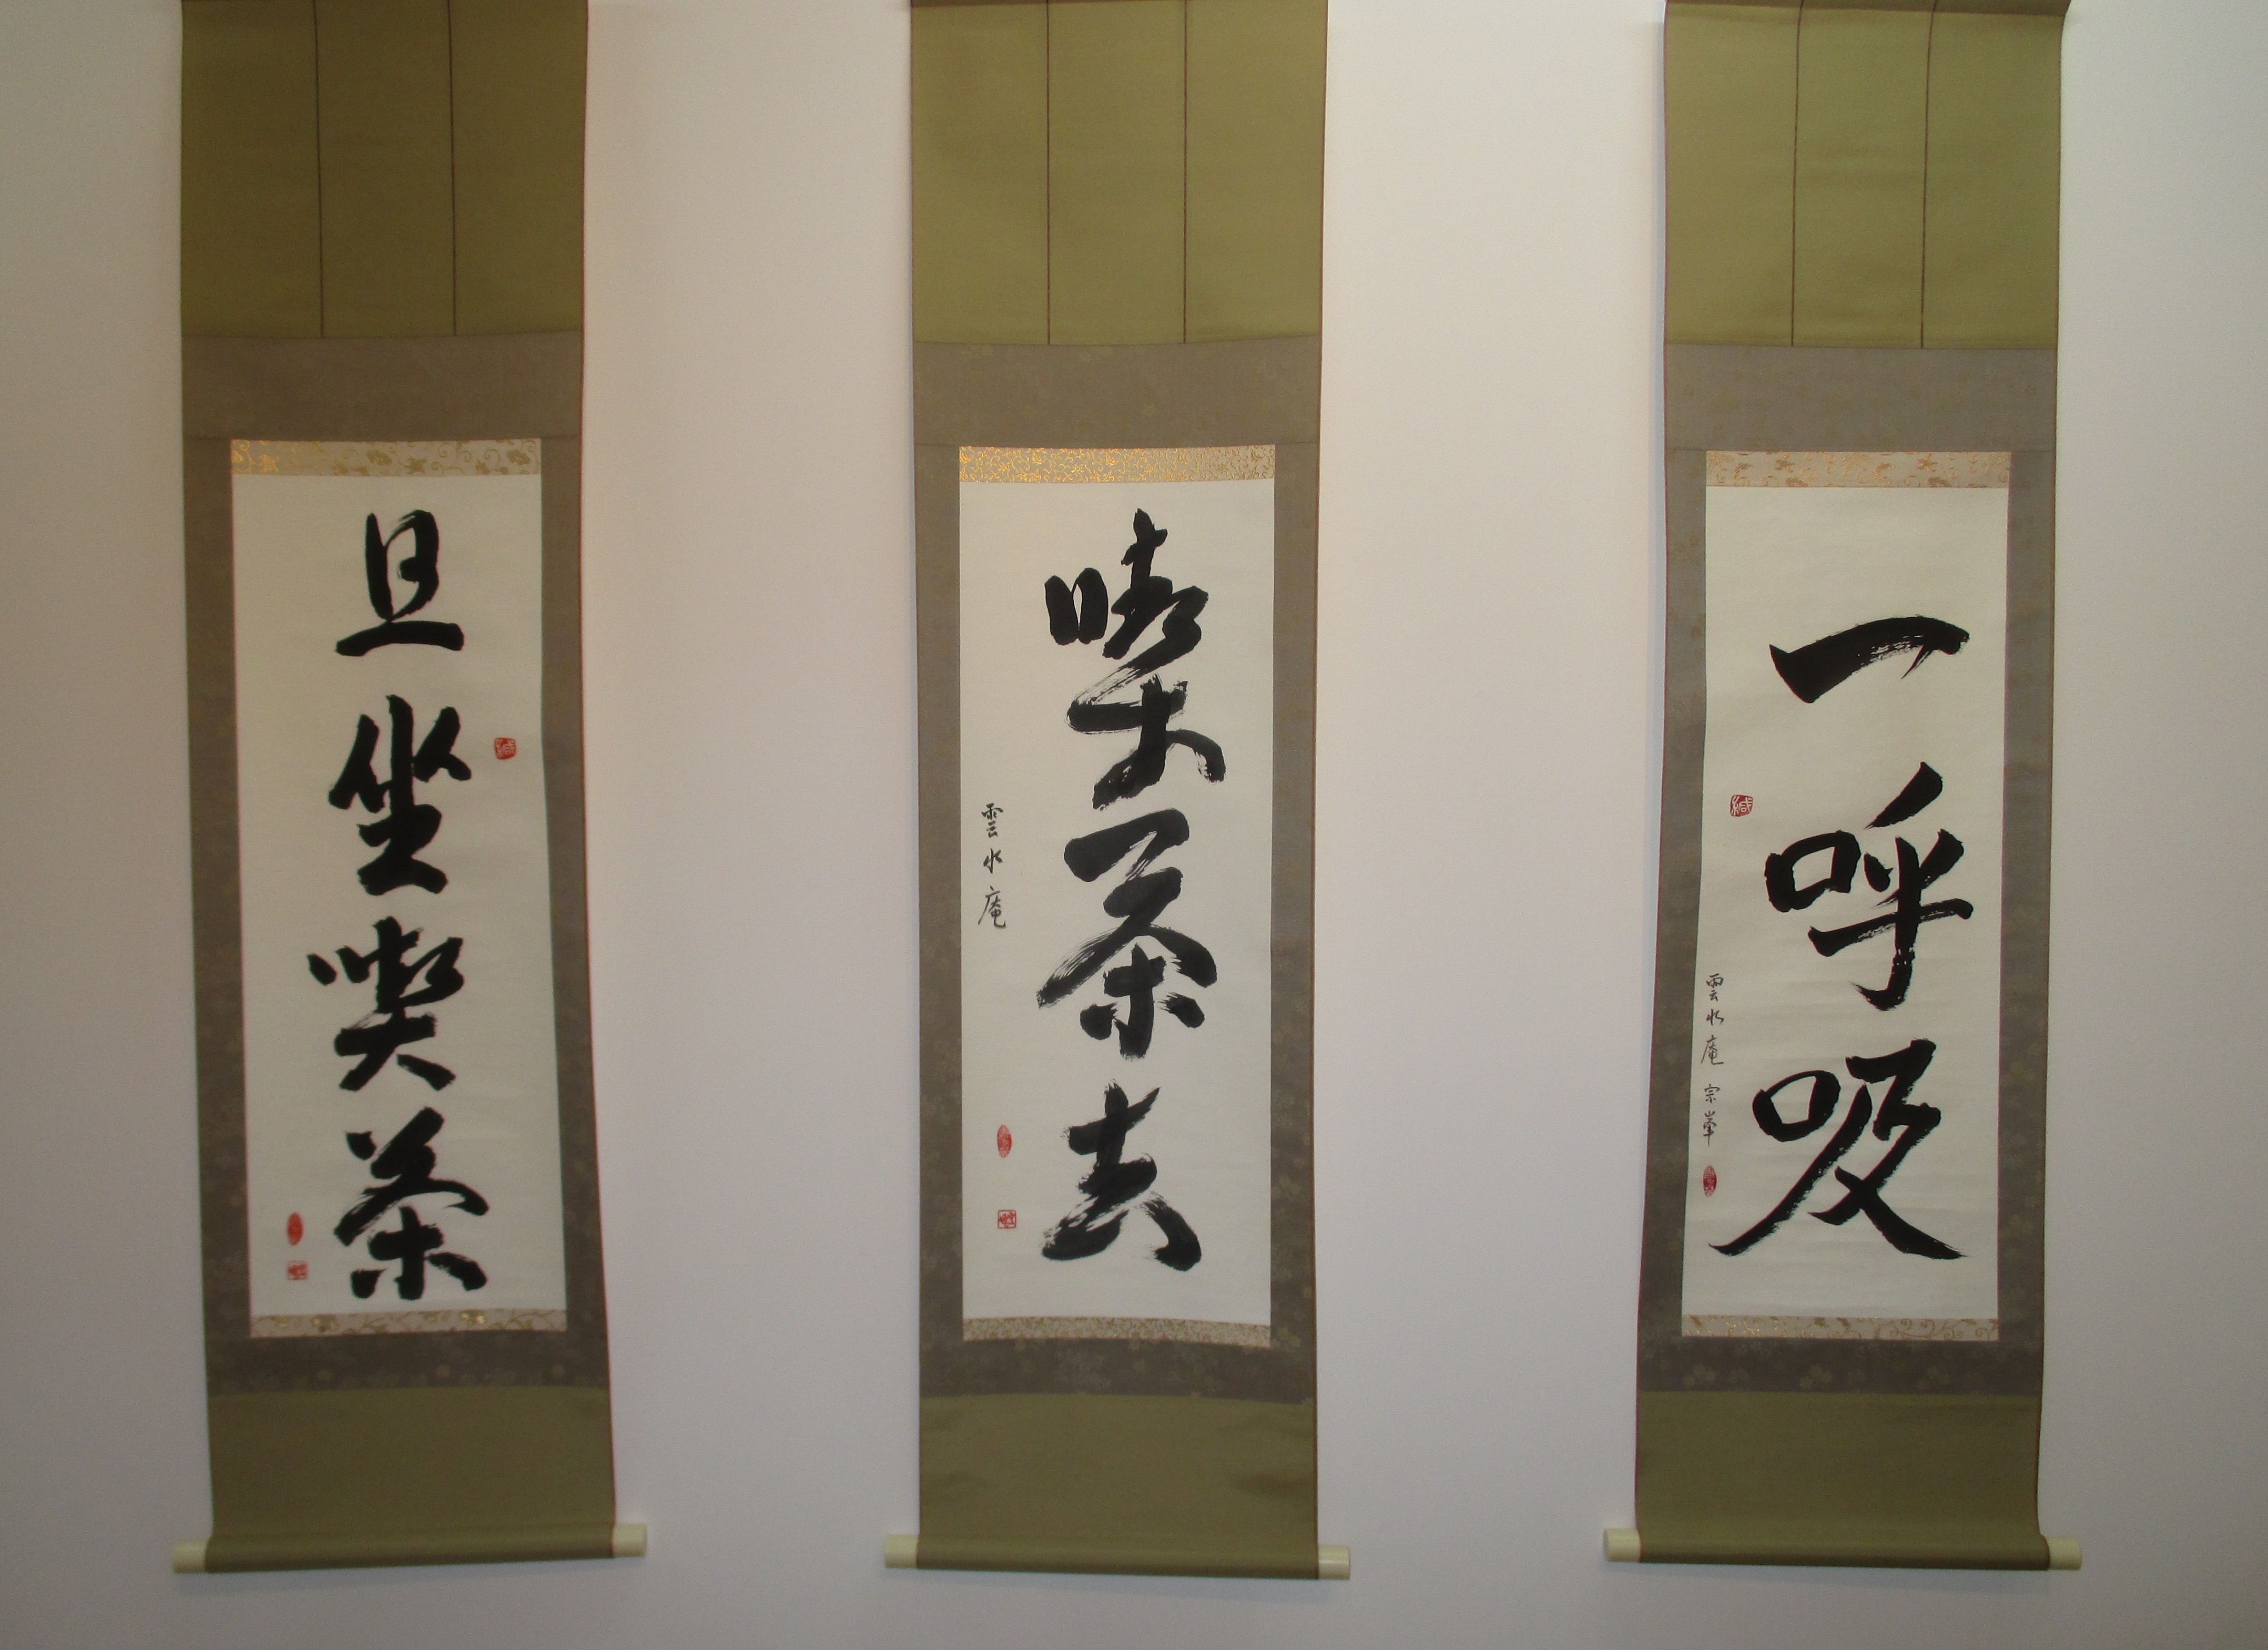 一呼吸
雲水庵 宗峯
喫茶去
雲水庵
且坐喫茶